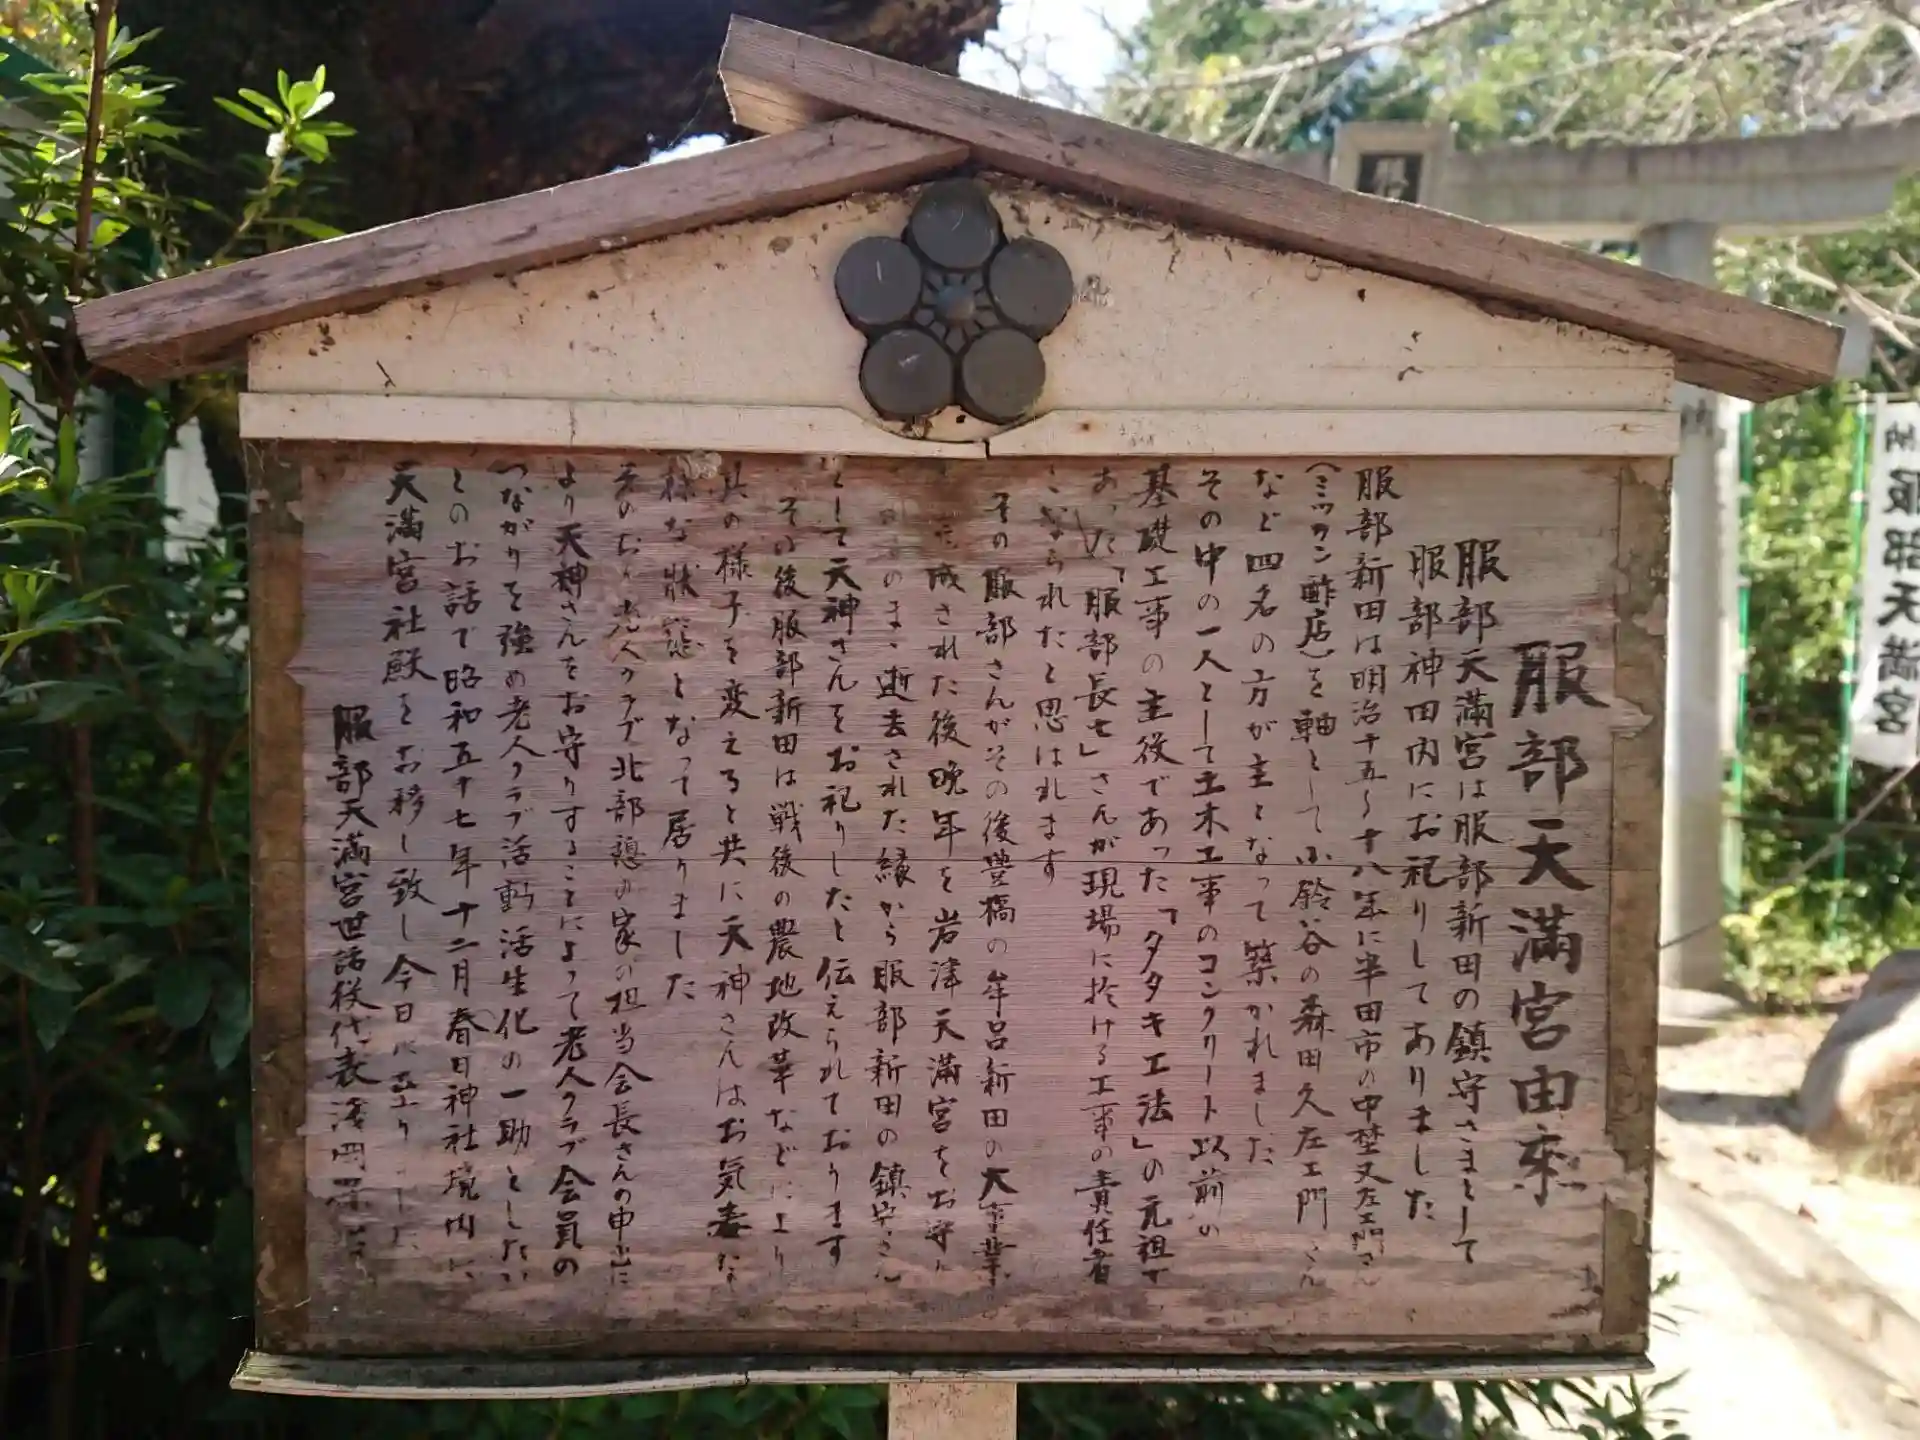 服部天満宮由来
服部天満宮は服部新田の鎮守さまとして
服部神田内にお祀りしてありました
服部新田は明治十五〜十八年に半田市の中埜又左エ門さん
(ミツカン酢店)を軸として小鈴谷の森田久左エ門さん
など四名の方が主となって築かれました
その中の一人として土木工事のコンクリート以前の
基礎工事の主役であった「タタキ工法」の元祖で
あった「服部長七」さんが現場に於ける工事の責任者
になられたと思はれます
その服部さんがその後豊橋の牟呂新田の大事業を
成された後晩年を岩津天満宮をお守り
のまゝ逝去された縁から服部新田の鎮守さん
として天神さんをお祀りしたと伝えられております
その後服部新田は戦後の農地改革などにより
其の様子を変えると共に天神さんはお気毒な
様な状態となって居りました
老人クラブ北部憩の家の担当会長さんの申出に
より天神さんをお守りすることによって老人クラブ会員の
つながりを強め老人クラブ活動活生化の一助としたい
とのお話で昭和五十七年十二月春日神社境内に
天満宮社殿をお移し致し今日に至りました
服部天満宮世話役代表浅岡
納 服部天満宮